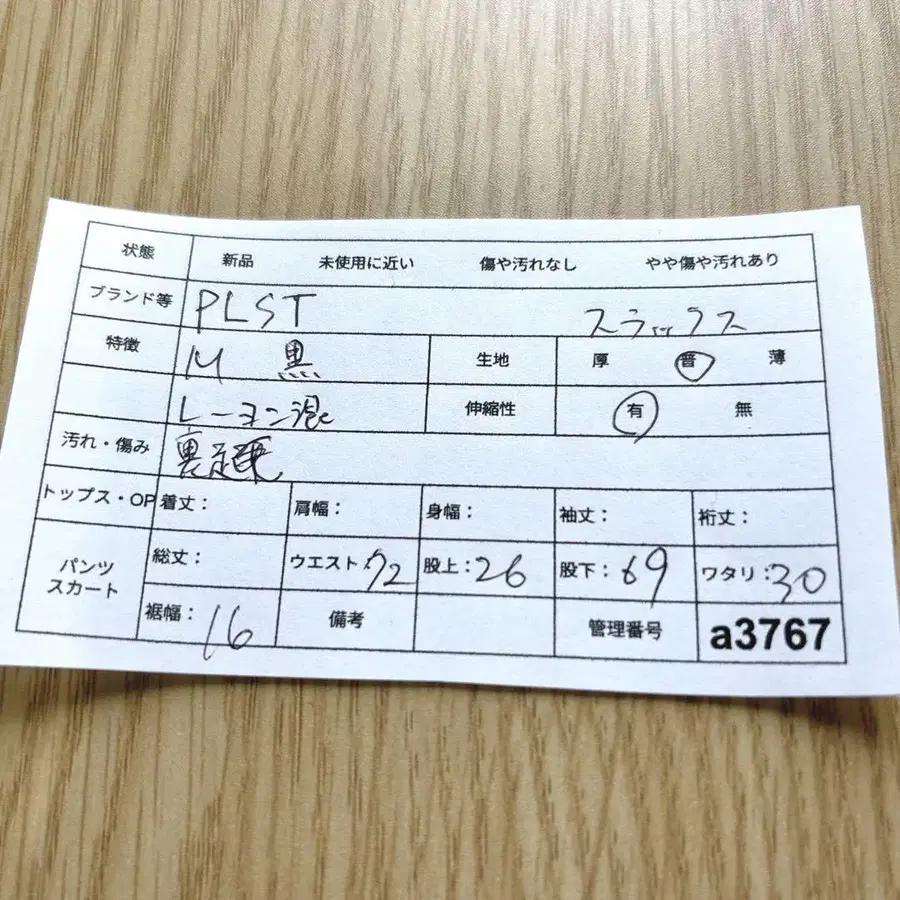 状態 新品 未使用に近い 傷や汚れなし やや傷や汚れあり
ブランド等 PLST スラックス
特徴 M 黒 生地 厚 普 薄
レーヨン混 伸縮性 有 無
汚れ・傷み 裏
トップス・OP 着丈: 肩幅: 身幅: 袖丈: 裄丈:
パンツ スカート 総丈: ウエスト:72 股上:26 股下:69 ワタリ:30
裾幅:16 備考 管理番号 a3767